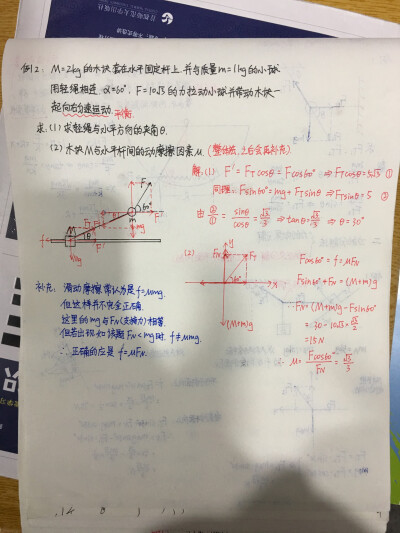 例2. M=2kg的木块套在水平固定杆上.并与质量m=1kg的小球
用轻绳相连. α=60°. F=10√3的力拉动小球并带动木块一
起向右匀速运动. 平衡.
求:(1)求轻绳与水平方向的夹角θ.
(2)木块M与水平杆间的动摩擦因素μ. (整体法,上白会再补充)
解:(1) F' = FTcosθ = Fcos60° ⇒ FTcosθ=5√3 ①
同理: Fsin60°=mg+FTsinθ ⇒FTsinθ=5 ②
由 ②/① = sinθ/cosθ = √3/3 ⇒ tanθ=√3/3 ⇒ θ=30°
F
60°
m
mg
FT
θ
M
f
Mg
(2)
y
FN
F
60°
x
(M+m)g
Fcos60° = f = μFN
Fsin60°+FN = (M+m)g
∴ FN = (M+m)g - Fsin60°
= 30 - 10√3 × √3/2
= 15N
∴ μ = Fcos60°/FN = √3/3
补充: 滑动摩擦常认为是f=μmg.
但这样并不完全正确.
这里的mg与FN(支撑力)相等.
但若出现如该题FN<mg时. f≠μmg.
∴ 正确的应是 f=μFN.